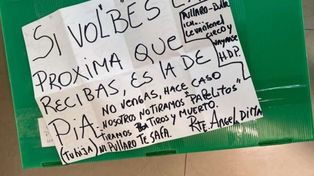 SI VOLBES LA
PROXIMA QUE
RECIBAS, ES LA DE
PIA.
PULLARO-
LEVANTEN EL
CIRCO Y
VAYANSE
H.D.P.
NO VENGAS, HACE CASO
NOSOTROS NO TIRAMOS "PAPELITOS"
TIRAMOS TIROS Y MUERTO.
(TU HIJA) NI PULLARO TE SAFA.
RTE. ANGEL DIMA